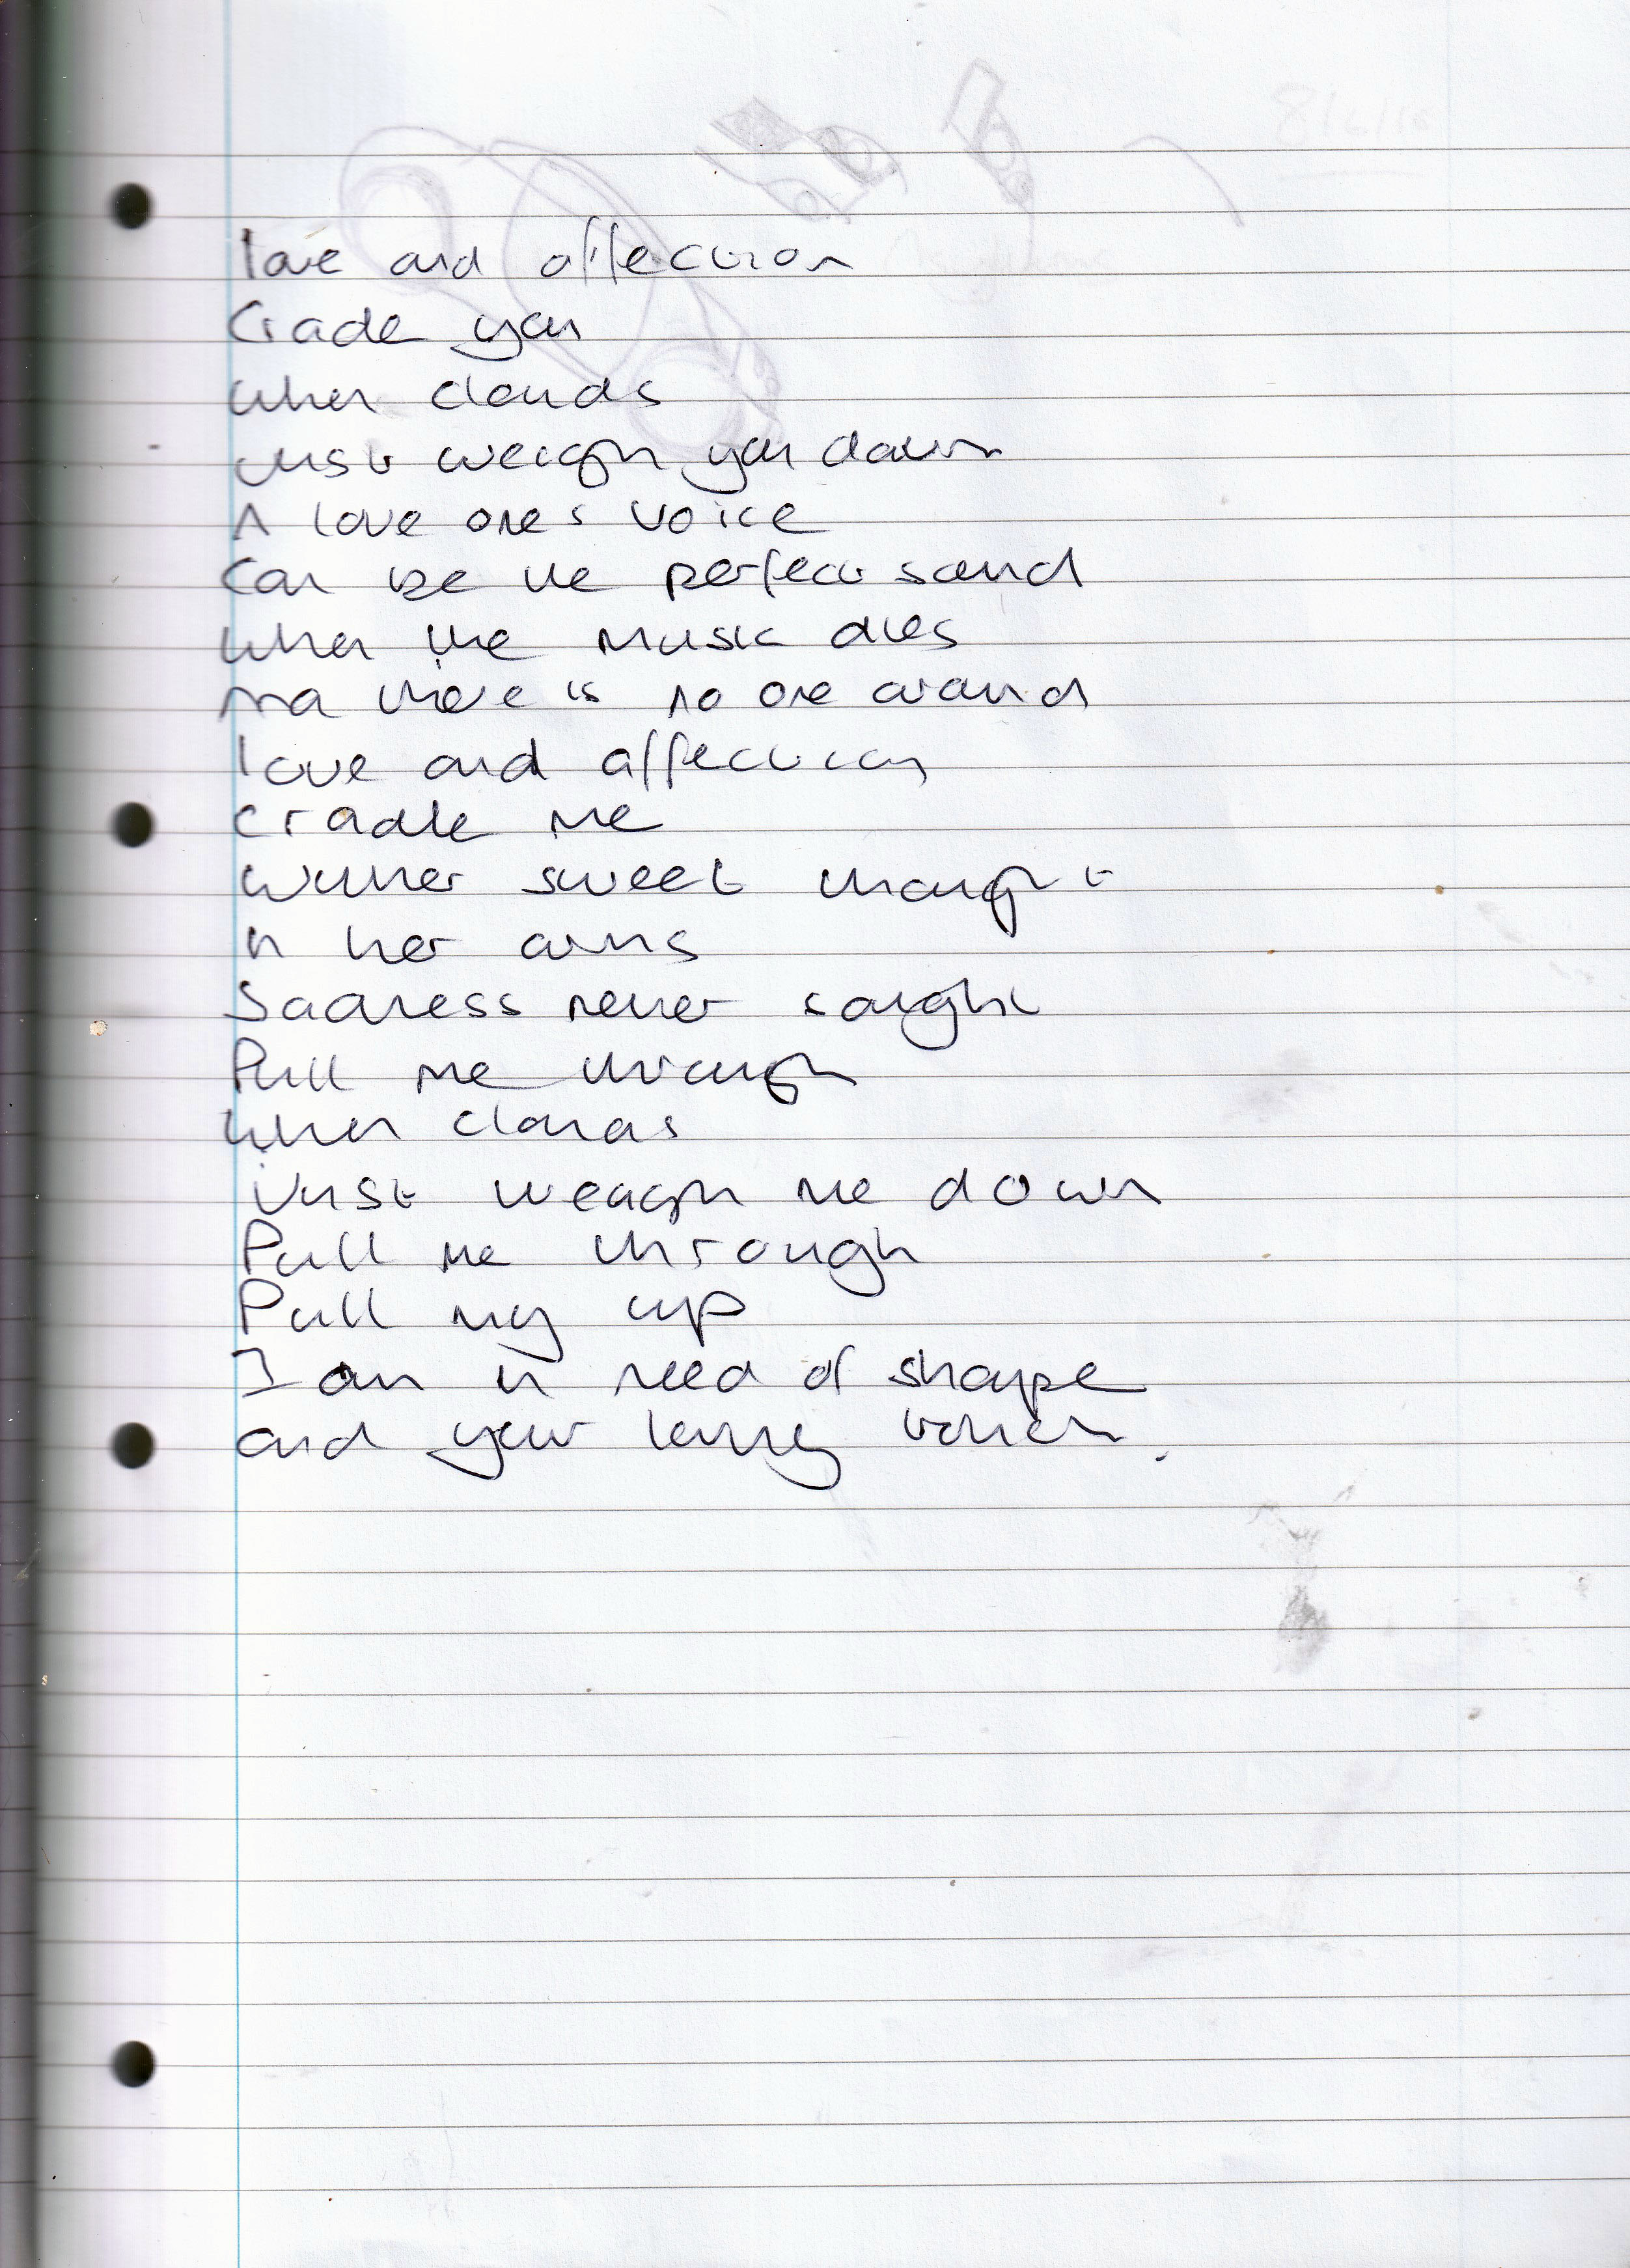 love and affection
Cradle you
when clouds
just weigh you down
A love one's voice
Can be the perfect sound
when the music dies
and there is no one around
love and affection
cradle me
wither sweet thought
in her arms
Sadness never sought
Pull me through
when clouds
just weigh me down
Pull me through
Pull my up
I am in need of shape
and your loving